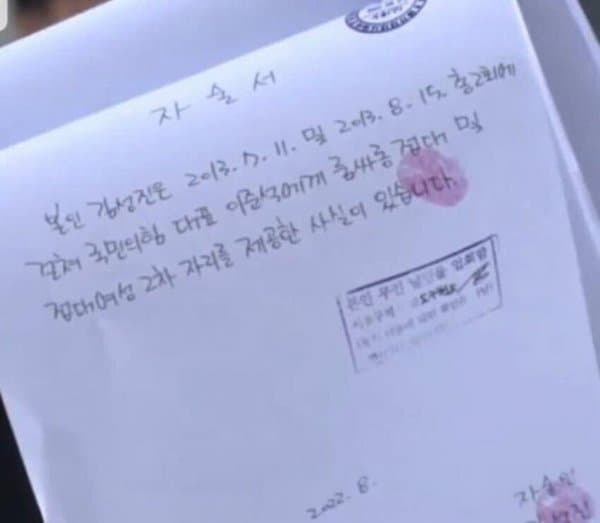 자술서
본인 김성진은 2013. 7. 11. 및 2013. 8. 15. 총2회에
걸쳐 국민의힘 대표 이준석에게 룸싸롱 접대 및
접대여성 2차 자리를 제공한 사실이 있습니다.
본인 무인 임을 확인함
2022. 8.
자술인